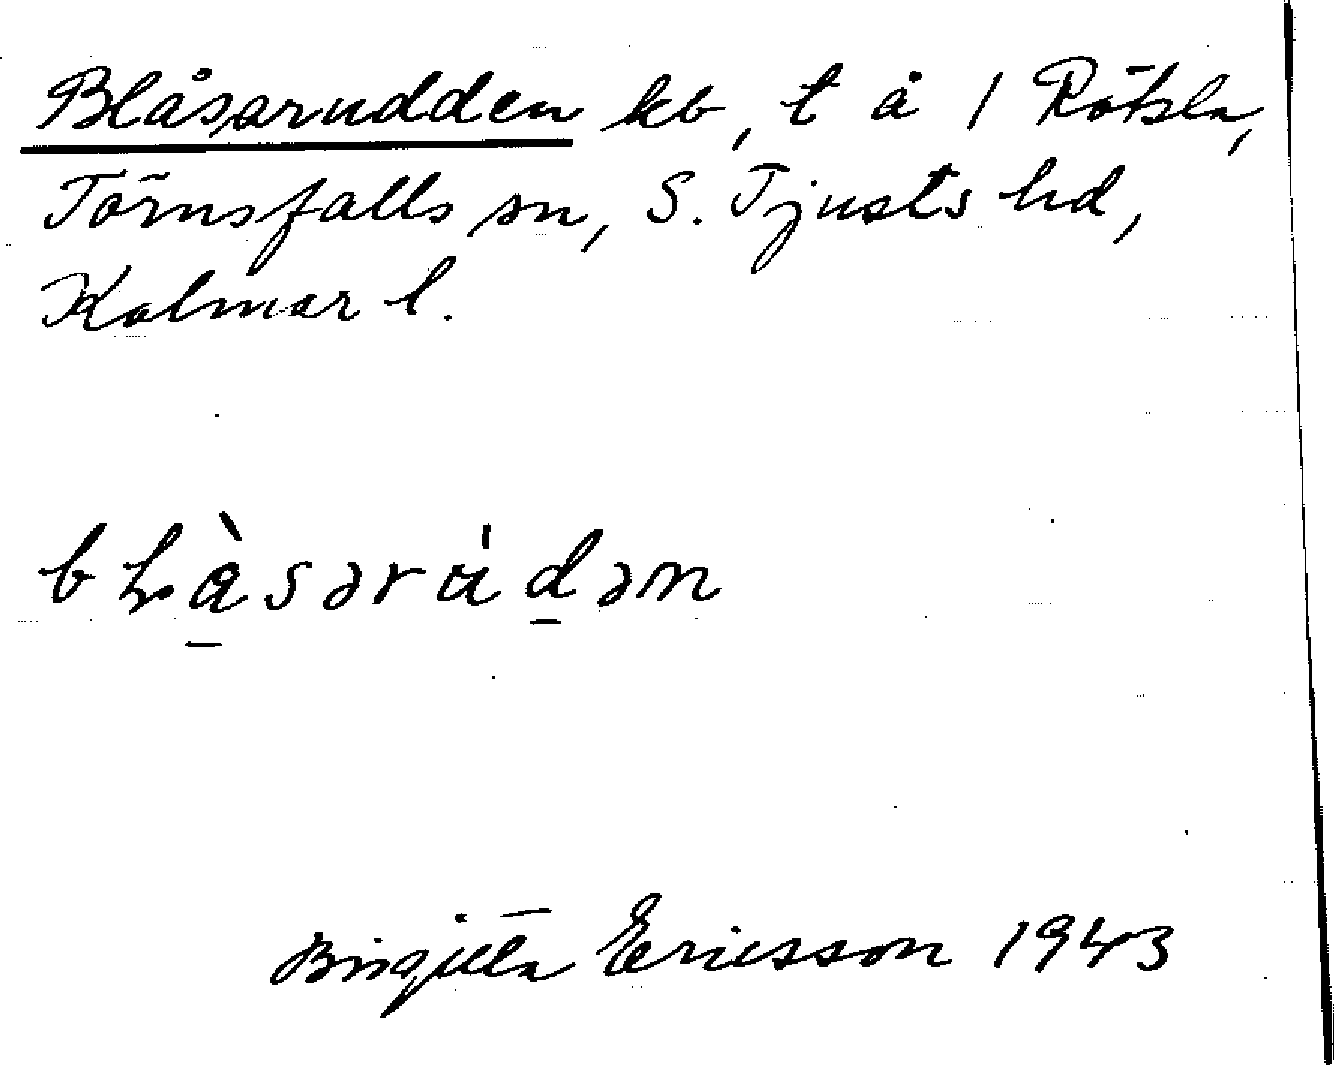 Blåsarudden kb, t å 1 Rötsla,
Törnsfalls sn, S. Tjusts hd,
Kalmar l.
Birgitta Ericsson 1943